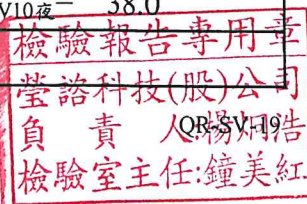 V10夜 38.0
檢驗報告專用章
瑩諮科技(股)公司
負責人:楊炯浩
QR-SV-19
檢驗室主任:鐘美紅